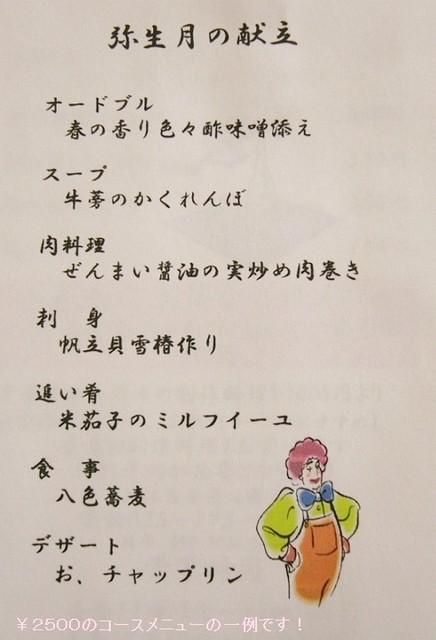 弥生月の献立
オードブル
春の香り色々酢味噌添え
スープ
牛蒡のかくれんぼ
肉料理
ぜんまい醤油の実炒め肉巻き
刺 身
帆立貝雪椿作り
追い肴
米茄子のミルフイーユ
食 事
八色蕎麦
デザート
お、チャップリン
￥2500のコースメニューの一例です！